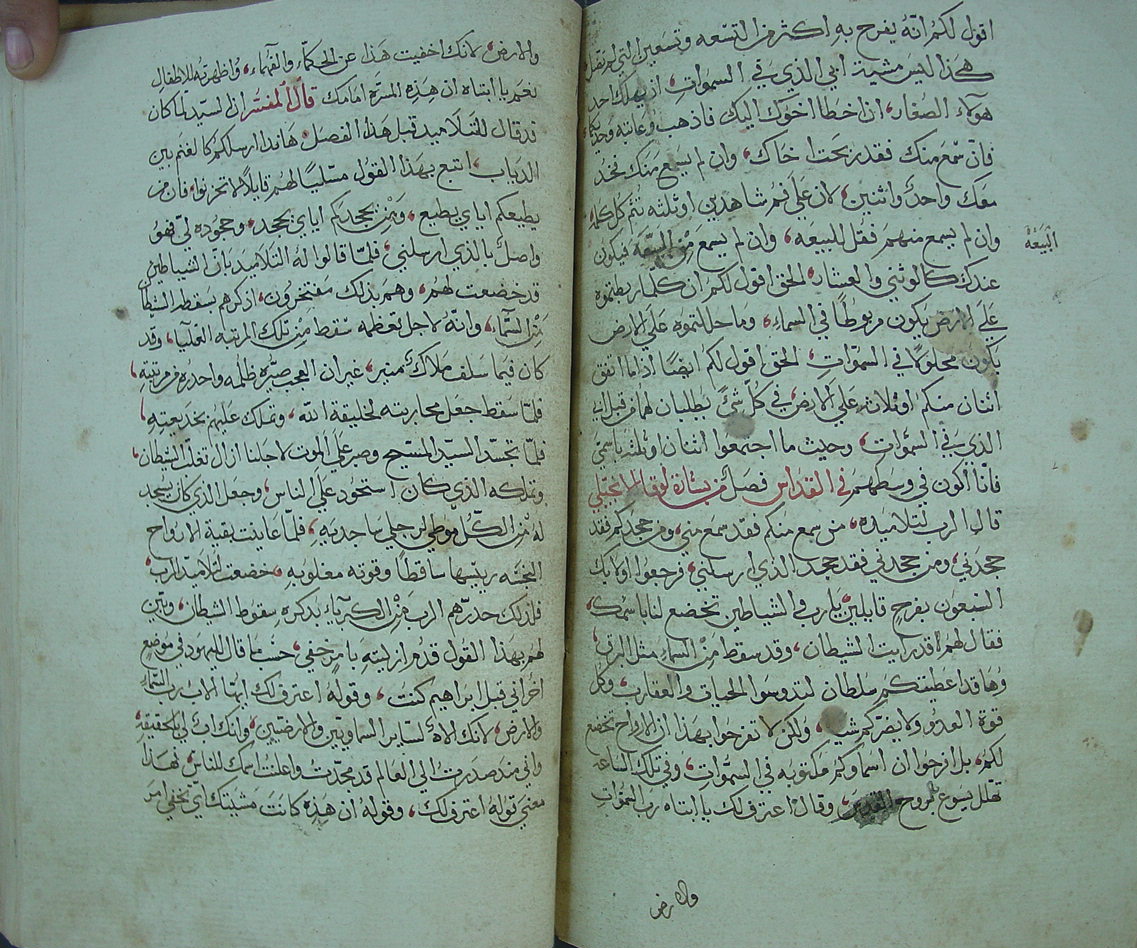 اقول لكم انه يفرح به اكثر من التسعه وتسعين التي لم تضل
هكذا ليس مشية ابي الذي في السموات ان يهلك احد
هولاء الصغار، اذا خطا اخوك اليك فاذهب وعاتبه وحدكما
فان سمع منك فقد ربحت اخاك، وان لم يسمع منك فخذ
معك واحد واثنين، لان على فم شاهدين او ثلثه تثم كل كلمه
وان لم يسمع منهم فقل للبيعه، وان لم يسمع من البيعه فيكون
البيعة
عندك كالوثني والعشار، الحق اقول لكم ان كلما ربطتموه
على الارض يكون مربوطا في السماء، وما حللتموه على الارض
يكون محلولا في السموات، الحق اقول لكم ايضا اذا ما اتفق
اثنان منكم او ثلاث على الارض في كل شئ يطلبان لهما من قبل ابي
الذي في السموات، وحيث ما اجتمعوا اثنان او ثلثه باسمي
فانا اكون في وسطهم في القداس فصل من بشارة لوقا الانجيلي
قال الرب لتلاميذه، من سمع منكم فقد سمع مني، ومن جحدكم فقد
جحدني، ومن جحدني فقد جحد الذي ارسلني، فرجعوا اولايك
السبعون بفرح قايلين يا رب والشياطين تخضع لنا باسمك،
فقال لهم قد رايت الشيطان، وقد سقط من السماء مثل البرق،
وها قد اعطيتكم سلطان لتدوسوا الحيات والعقارب، وكل
قوة العدو ولا يضركم شيا، ولكن لا تفرحوا بهذا ان الارواح تخضع
لكم، بل افرحوا ان اسماوكم مكتوبه في السموات، وفي تلك الساعة
تهلل يسوع بروح القدس، وقال اعترف لك يا ابتاه رب السموات
والارض
والارض، لانك اخفيت هذا عن الحكماء والفهماء، واظهرته للاطفال
نعم يا ابتاه ان هذه المسره امامك قال المفسر ان السيد لما كان
قد قال للتلاميذ قبل هذا الفصل، هاندا ارسلكم كالغنم بين
الدياب، اتبع بهذا القول مسليا لهم قايلا لا تحزنوا، فان من
يطيعكم اياي يطيع، ومن يجحدكم اياي يجحد، وجحوده لي فهو
واصل بالذي ارسلني، فلما قالوا له التلاميذ بان الشياطين
قد خضعت لهم، وهم بذلك مفتخرون، اذكرهم سقط الشيطان
من السماء، وانه لاجل تعظمه سقط من تلك المرتبه العليا، وقد
كان فيما سلف ملاك منير، غير ان العجب صيره ظلمه واحدره من مرتبته،
فلما سقط جعل محاربته لخليقة الله، وتملك عليهم بخديعته
فلما تجسد السيد المسيح وصبر على الموت لاجلنا ازال تغلب الشيطان،
وتملكه الذي كان استحود على الناس، وجعل الذي كان يسجد
له من الكل موطي لرجلي ساجديه، فلما عاينت بقية الارواح
النجسه ريسها ساقطا وقوته مغلوبه، خضعت لتلاميذ الرب
فلذلك حدرهم الرب من الكبرياء بذكره سقوط الشيطان، وبين
لهم بهذا القول قدم ازليته بامر خفي، حسب ما قال لليهود في موضع
اخر اني قبل ابراهيم كنت، وقوله اعترف لك ايها الاب رب السماء
والارض، لانك الاه لساير السماويين والارضيين، وانك اب لي بالحقيقه
واني مند صدرت الي العالم قد مجدت واعلنت اسمك للناس، فهذا
معني قوله اعترف لك، وقوله ان هذه كانت مشيتك اي تخفي امر